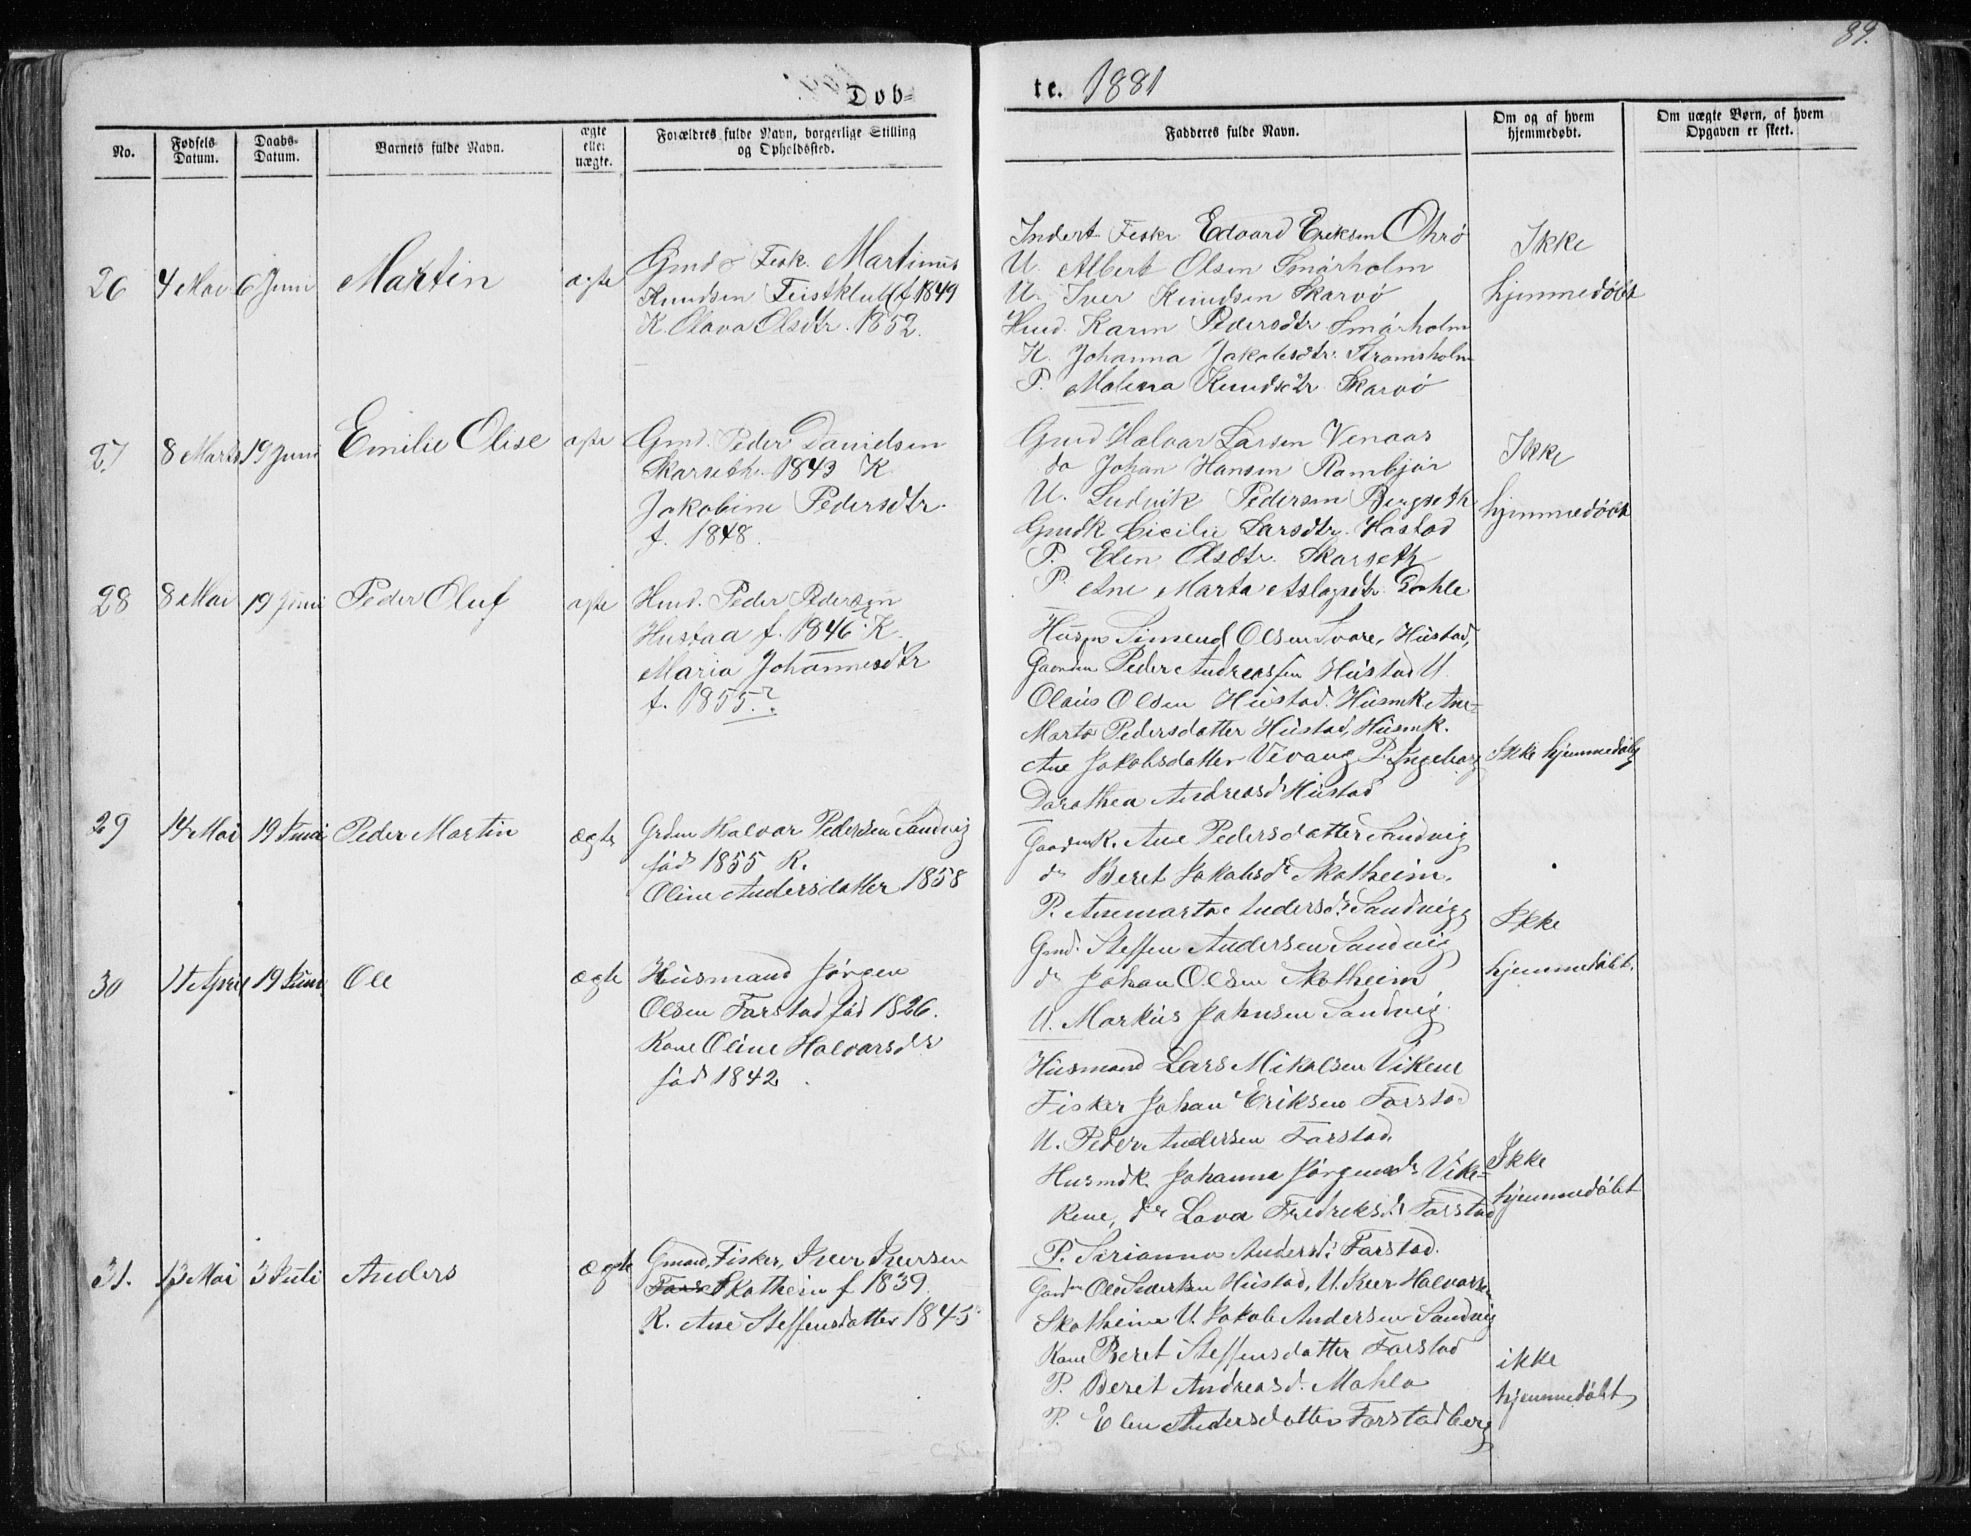 89.
Døb=
te. 1881
No.
Fødsels
Datum.
Daabs-
Datum.
Barnets fulde Navn.
ægte
eller
uægte.
Forældres fulde Navn, borgerlige Stilling
og Opholdssted.
Fadderes fulde Navn.
Om og af hvem
hjemmedøbt.
Om uægte Børn, af hvem
Opgaven er skeet.
26 4 Mai 6 Juni Martin ægte
Gmd & Fisk. Martinus
Knudsen Teistklub f. 1849
K. Olava Olsdtr. 1852.
Inders Fisker Edvard Eriksen Othrø
U. Albert Olsen Smørholm
U. Iver Knudsen Skarvø
Hmd. Karen Pedersdtr. Smørholm
K. Johanna Jakobsdtr. Strømsholm
P. Malena Knudsdtr. Skarvø
Ikke
hjemmedøbt
27 8 Marts 19 Juni Emilie Olise ægte
Gmd. Peder Danielsen
Skarseth. 1843 K
Jakobine Pedersdtr.
f. 1848.
Gmd Halvar Larsen Venaas
do Johan Hansen Rambjør
U. Ludvik Pedersen Bergseth
GmdK Cicilie Larsdtr. Hostad
P. Elen Olsdtr. Skarseth
P. Ane Marta Aslagsdtr. Dahle
Ikke
hjemmedøbt
28 8 Mai 19 Juni Peder Oluf ægte
Hmd. Peder Pedersen
Hustaa f. 1846? K.
Maria Johannesdtr
f. 1855.?
Husm Simend Olsen Svare, Hustad,
Gaardm Peder Andreassen Hustad U.
Olaus Olsen Hustad. HusmK. Ane
Marta Pedersdatter Hustad, HusmK.
Ane Jakobsdatter Vevang P. Ingeborg
Dorothea Andreasd. Hustad
Ikke hjemmedøbt
29 14 Mai 19 Juni Peder Martin ægte
Grdm Halvor Pedersen Sandvig
fød 1855 K.
Oline Andersdatter 1858
GaardmK. Ane Pedersdatter Sandvig
do Beret Jakobsdr Skotheim.
P. Anemarta Andersdr Sandvig
Gmd. Steffen Andersen Sandvig
do Johan Olsen Skotheim
U. Markus Johnsen Sandvig
Ikke
hjemmedøbt.
30 11 April 19 Juni Ole ægte
Husmand Jørgen
Olsen Farstad fød 1826.
Kone Oline Halvarsdr
fød 1842.
Husmand Lars Mikalsen Vikene
Fisker Johan Eriksen Farstad
U. Peder Andersen Farstad.
HusmdK. Johanna Jørgensdr Vike=
kene, do Lava Fredriksdr Farstad
P. Sirianna Andersd. Farstad.
Ikke
hjemmedøbt
31. 13 Mai 3 Juli Anders ægte
Gmand, Fisker, Iver Iversen
Skotheim f 1839.
K. Ane Steffensdatter 1845
Gardm Ole Sivertsen Hustad, U. Iver Halvorsen
Skotheim U. Jakob Andersen Sandvig
Kone Beret Steffensdatter Farstad
P. Beret Andreasd. Mahlo
P. Elen Andersdatter Farstadberg
ikke
hjemmedøbt